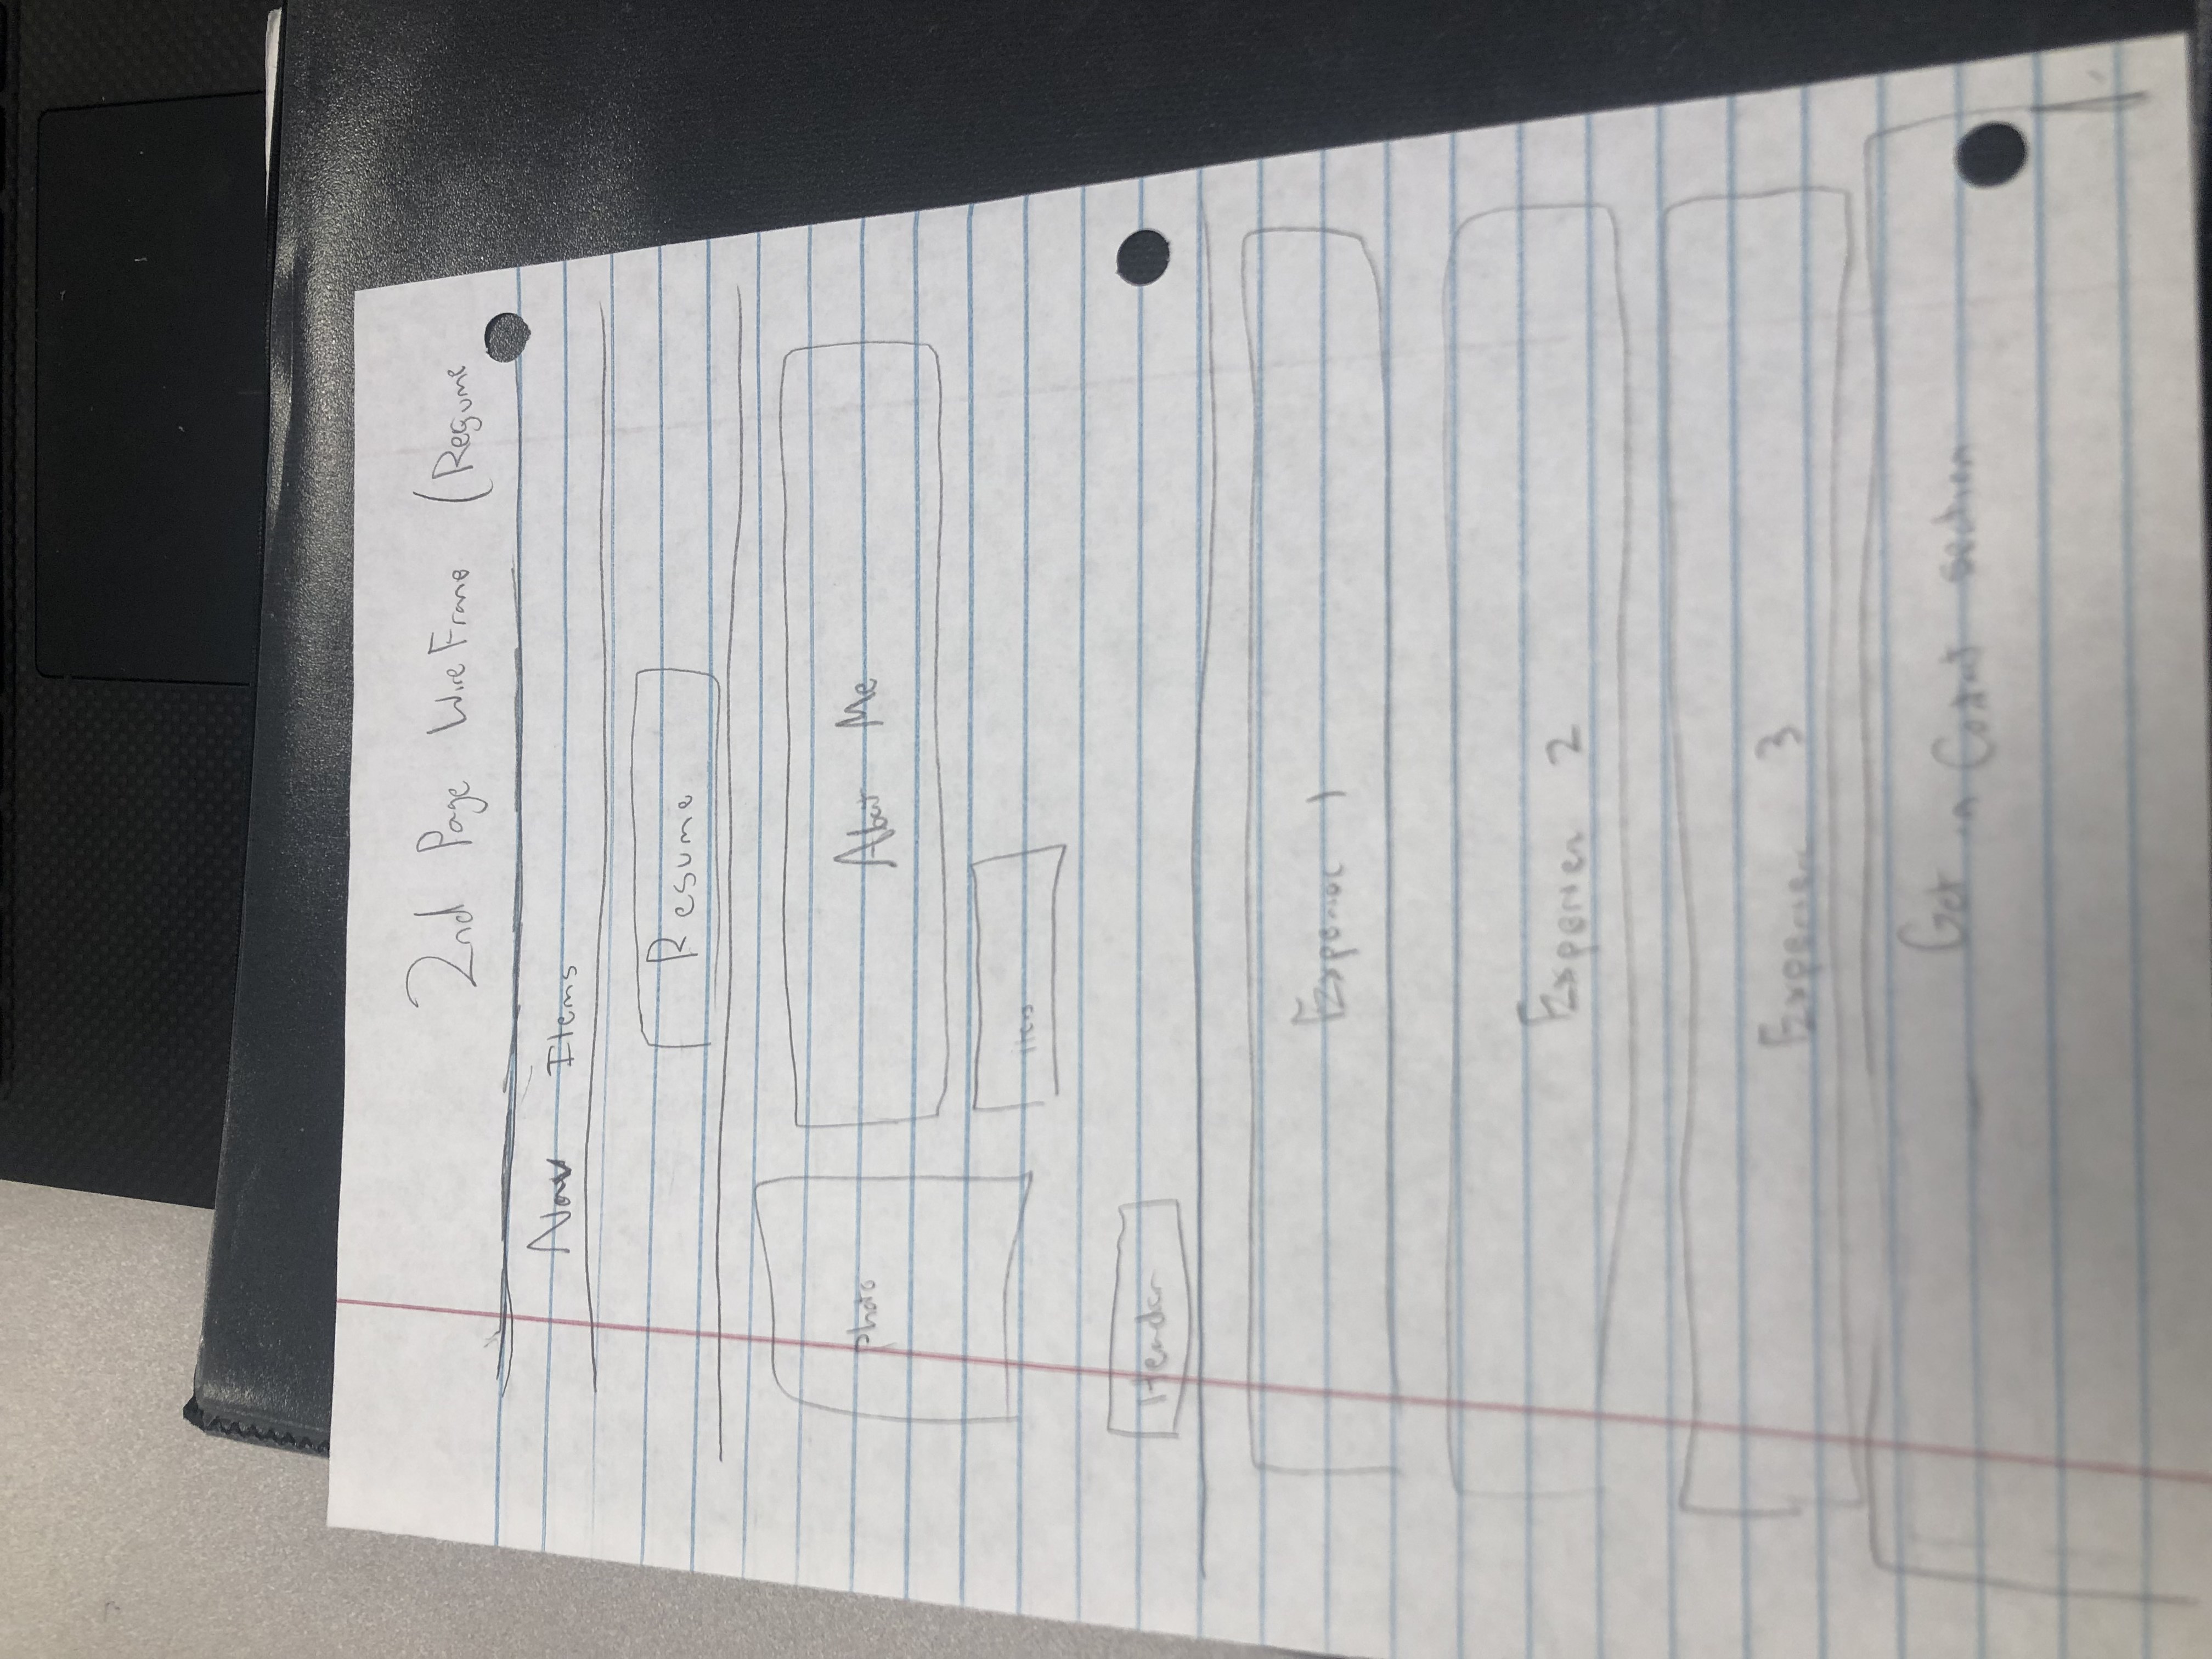 2nd Page WireFrame (Resume
Nav Items
Resume
Photo
About Me
Header
Experienc 1
Experien 2
Experien 3
Get in Contact section